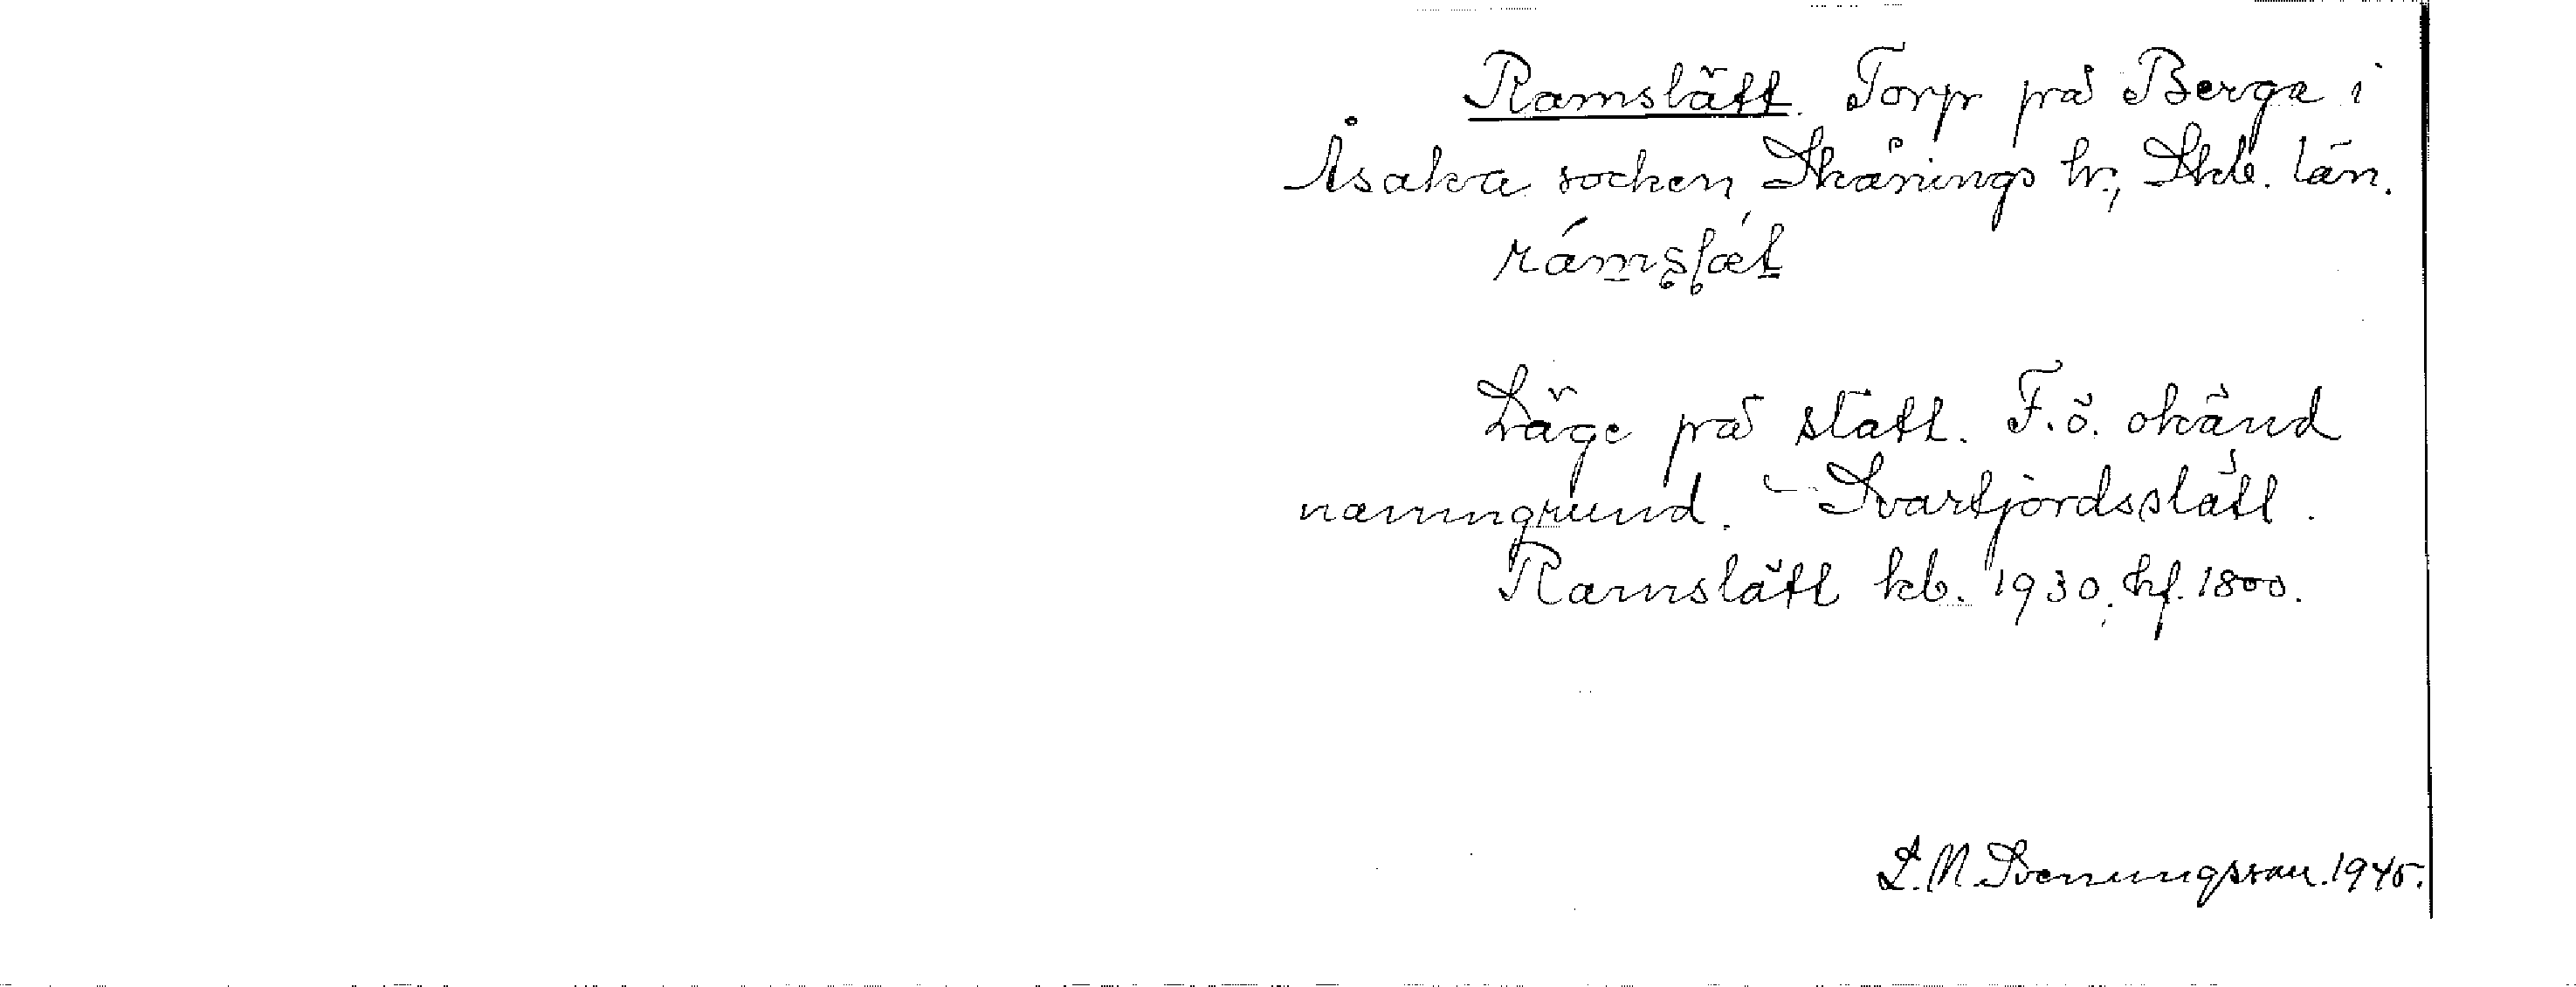 Ramslätt. Torp på Berga i
Åsaka socken, Skånings hr., Skb. län.
rámslæt
Läge på slätt. F.ö. okänd
namngrund. - Svartjordsslätt.
Ramslätt kb. 1930, hf. 1800.
L. M. Svenungsson. 1945.